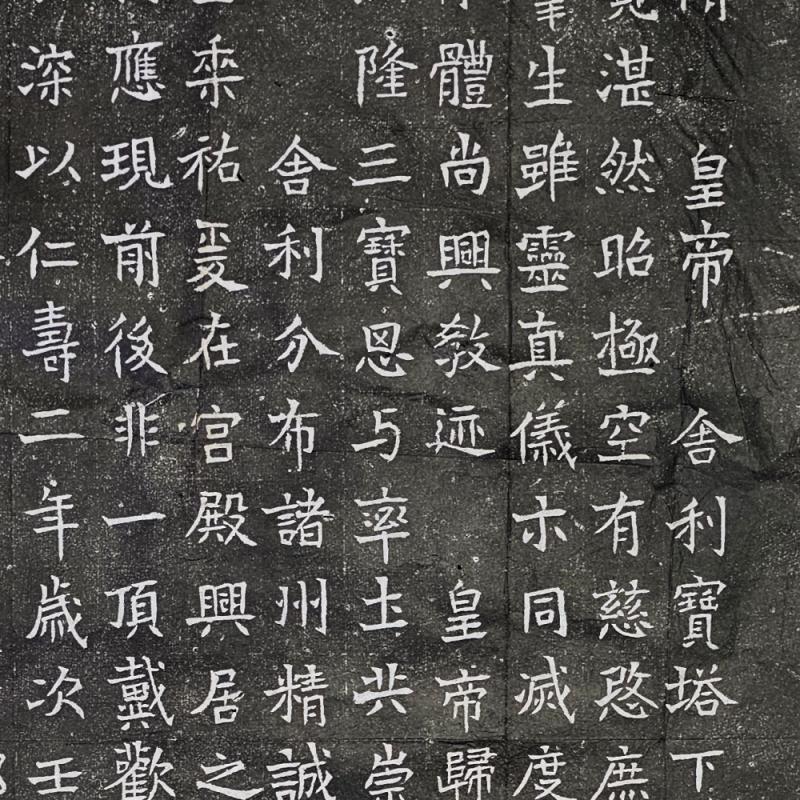 皇帝舍利寶塔下
湛然昭極空有慈悠庶
生雖靈真儀示同滅度
體尚興教迹皇帝歸
隆三寶恩与率土共崇
舍利分布諸州精誠
祐爰在宮殿興居之
應現前後非一頂戴歡
深以仁壽二年歲次壬